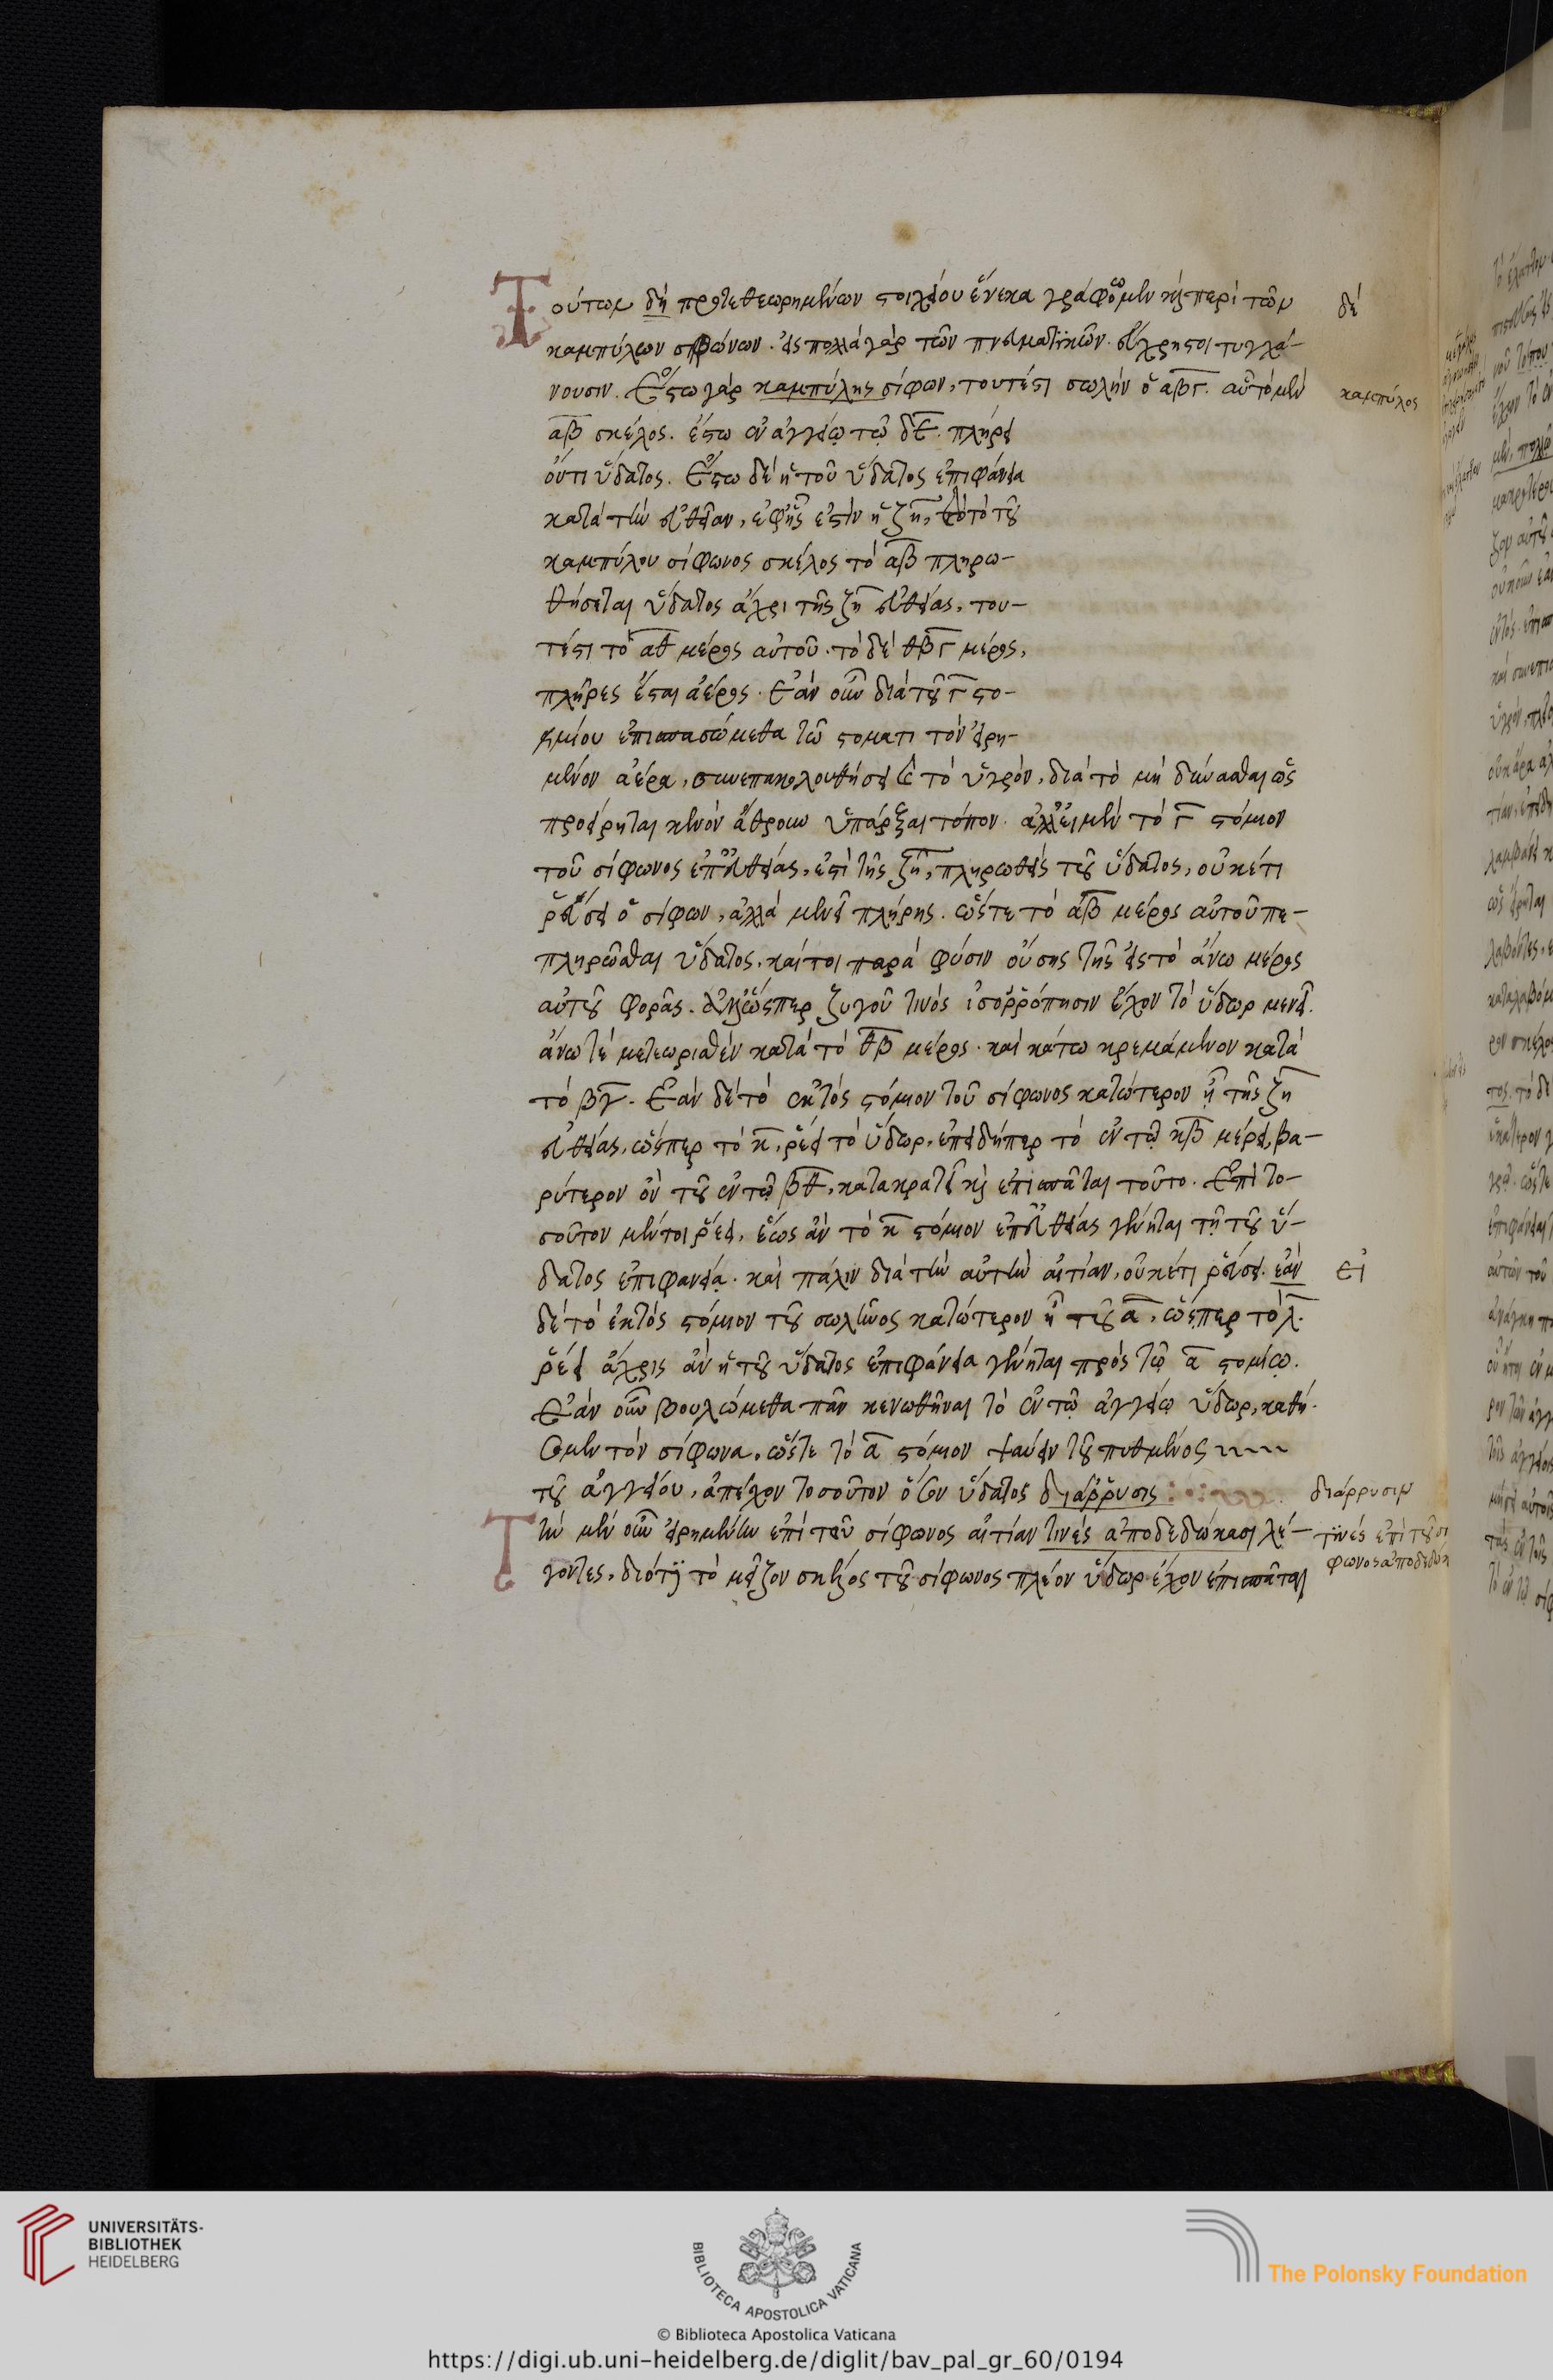 Τούτων δὴ προτεθεωρημένων στοιχείου ἕνεκα γράφομεν καὶ περὶ τῶν
δέ
καμπύλων σιφώνων· εἰς πολλὰ γὰρ τῶν πνευματικῶν εὔχρηστοι τυγχά-
νουσιν. Ἔστω γὰρ καμπύλης σίφων, τουτέστι σωλὴν ὁ αβγ. αὖ τὸ μὲν
καμπύλος
αβ σκέλος. ἔστω ἐν ἀγγείῳ τῷ δε πλήρει
ὄντι ὕδατος. Ἔστω δὲ ἡ τοῦ ὕδατος ἐπιφάνεια
κατὰ τὴν εὐθεῖαν, ἐφ' ἧς ἐστὶν ἡ ζη, τὸ τοῦ
καμπύλου σίφωνος σκέλος τὸ αβ πληρω-
θήσεται ὕδατος ἄχρι τῆς ζη εὐθείας, του-
τέστι τὸ αθ μέρος αὐτοῦ. τὸ δὲ θβγ μέρος,
πλῆρες ἔσται ἀέρος. Ἐὰν οὖν διὰ τοῦ γ στο-
μίου ἐπισπασώμεθα τῷ στόματι τὸν εἰρη-
μένον ἀέρα, συνεπακολουθήσει καὶ τὸ ὑγρόν, διὰ τὸ μὴ δύνασθαι ὡς
προείρηται κενὸν ἄθρουν ὑπάρξαι τόπον. ἀλλ' εἰ μὲν τὸ γ στόμιον
τοῦ σίφωνος ἐπ' εὐθείας, ἐστὶ τῆς ζη, πληρωθεὶς τοῦ ὕδατος, οὐκέτι
ῥεύσει ὁ σίφων, ἀλλὰ μενεῖ πλήρης. ὥστε τὸ αβ μέρος αὐτοῦ πε-
πληρῶσθαι ὕδατος, καίτοι παρὰ φύσιν οὔσης τῆς εἰς τὸ ἄνω μέρος
αὐτοῦ φορᾶς. ὥσπερ ζυγοῦ τινὸς ἰσορρόπησιν ἔχον τὸ ὕδωρ μενεῖ.
ἄνω τὲ μετεωρισθὲν κατὰ τὸ θβ μέρος. καὶ κάτω κρεμάμενον κατὰ
τὸ βγ. Ἐὰν δὲ τὸ ἐκτὸς στόμιον τοῦ σίφωνος κατώτερον ᾖ τῆς ζη
εὐθείας, ὥσπερ τὸ κ, ῥέει τὸ ὕδωρ, ἐπειδήπερ τὸ ἐν τῷ κβ μέρει, βα-
ρύτερον ὂν τοῦ ἐν τῷ βθ, κατακρατεῖ καὶ ἐπισπᾶται τοῦτο. Ἐπὶ το-
σοῦτον μέντοι ῥέει, ἕως ἂν τὸ κ στόμιον ἐπ' εὐθείας γένηται τῇ τοῦ ὕ-
δατος ἐπιφανείᾳ. καὶ πάλιν διὰ τὴν αὐτὴν αἰτίαν, οὐκέτι ῥεύσει. ἐὰν
εἰ
δὲ τὸ ἐκτὸς στόμιον τοῦ σωλῆνος κατώτερον ᾖ τοῦ α, ὥσπερ τὸ λ.
ῥέει ἄχρις ἂν ἡ τοῦ ὕδατος ἐπιφάνεια γένηται πρὸς τῷ α στομίῳ.
Ἐὰν οὖν βουλώμεθα πᾶν κενωθῆναι τὸ ἐν τῷ ἀγγείῳ ὕδωρ, καθή-
σομεν τὸν σίφωνα, ὥστε τὸ α στόμιον ψαύειν τοῦ πυθμένος
τοῦ ἀγγείου, ἀπέχον τοσοῦτον ὅσον ὕδατος διάρρυσις
διάρρυσιν
Τὴν μὲν οὖν εἰρημένην ἐπὶ τοῦ σίφωνος αἰτίαν τινὲς ἀποδεδώκασι λέ-
τινές ἐπὶ τοῦ σι
φωνος ἀποδεδώκ
γοντες, διότι τὸ μεῖζον σκέλος τοῦ σίφωνος πλέον ὕδωρ ἔχον ἐπισπᾶται
UNIVERSITÄTS-
BIBLIOTHEK
HEIDELBERG
BIBLIOTECA APOSTOLICA VATICANA
The Polonsky Foundation
© Biblioteca Apostolica Vaticana
https://digi.ub.uni-heidelberg.de/diglit/bav_pal_gr_60/0194